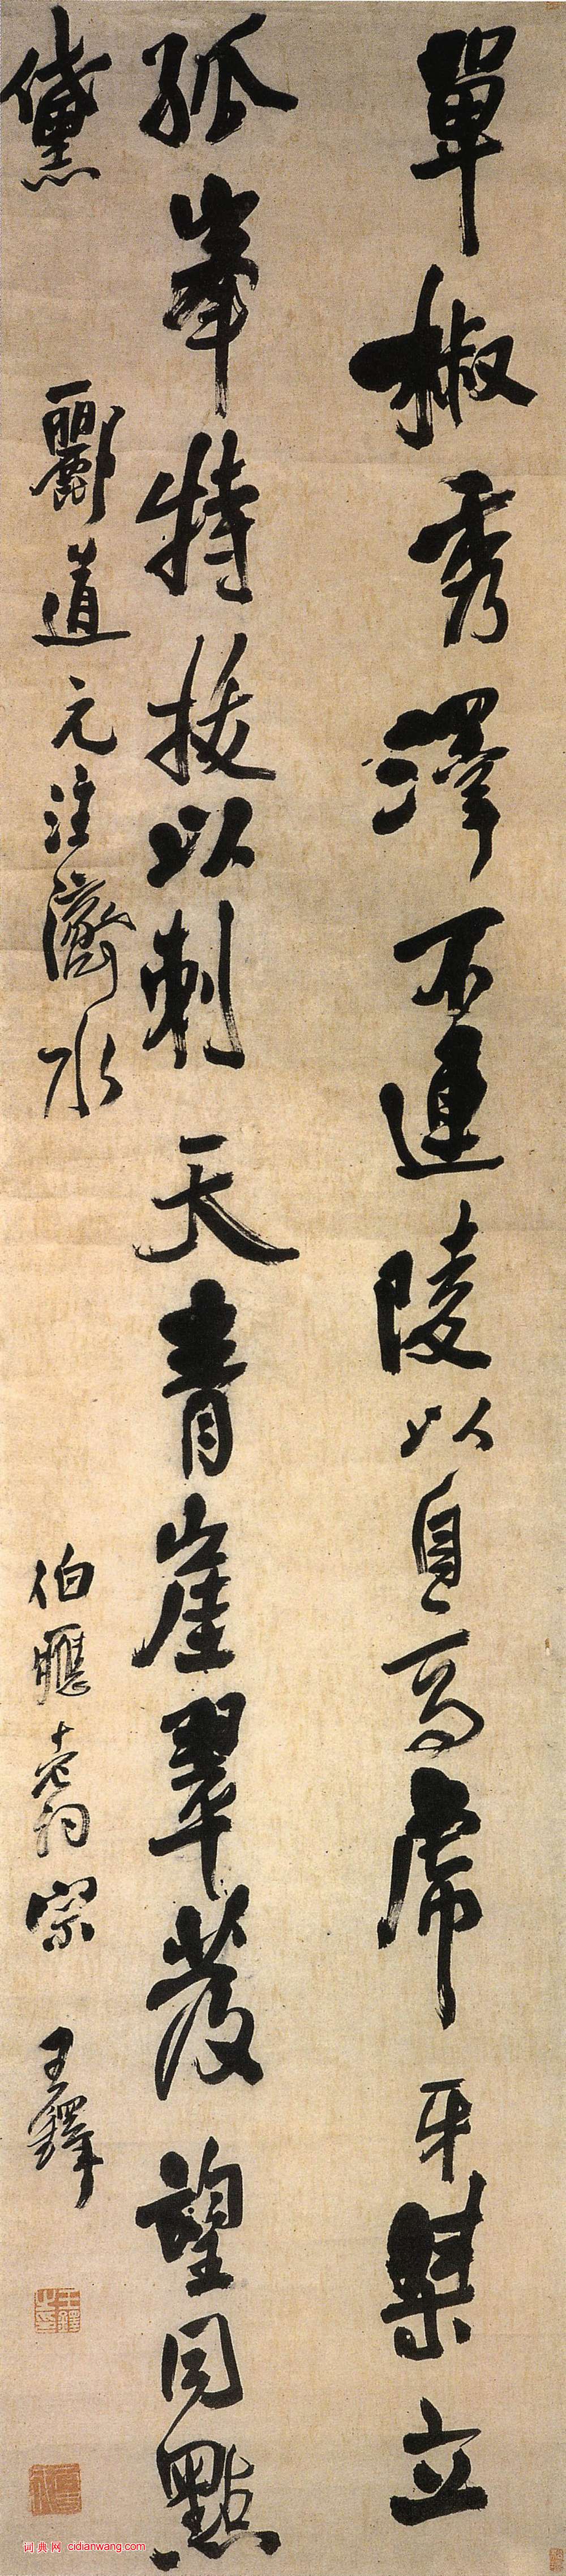 單椒秀澤不連陵以自高虎牙桀立
孤峯特拔以刺天青崖翠發望同點
黛 酈道元注濟水 伯應老詞宗 王鐸
王鐸之印
词典网 cidianwang.com